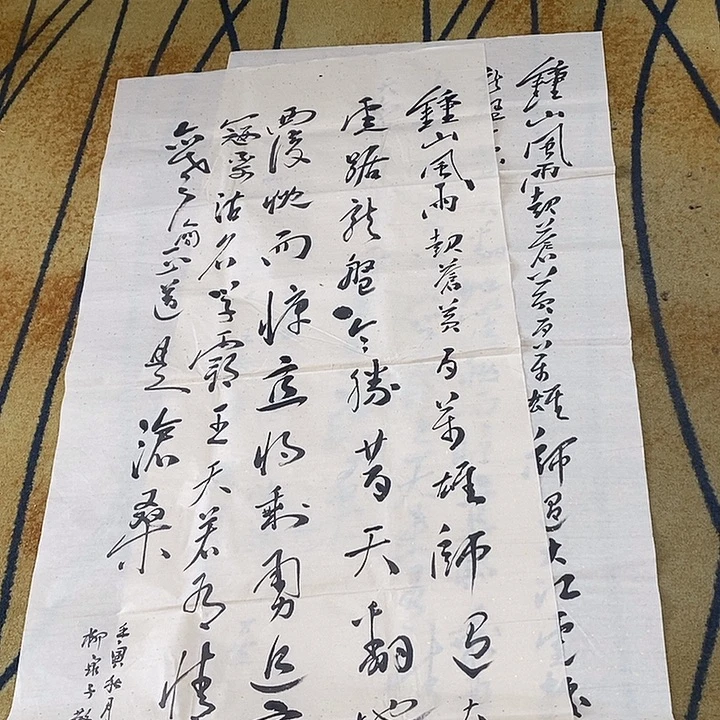 鍾山風雨起蒼黃百万雄師過大江虎踞
龍盤
鍾山風雨起蒼黃百万雄師過大
虎踞龍盤今勝昔天翻地
覆慨而慷宜將剩勇追窮
寇不可沽名學霸王天若有情
亦老人間正道是滄桑
壬寅秋月
柳泉子敬